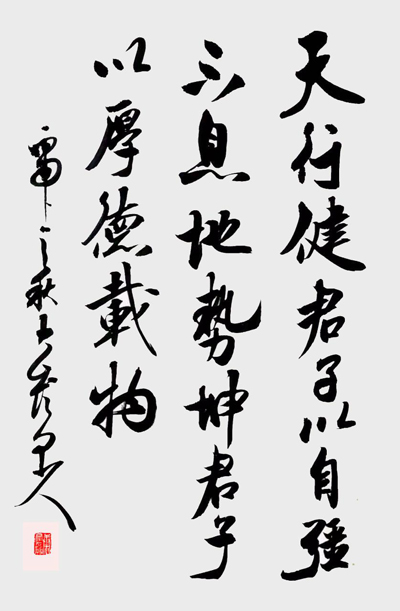 天行健君子以自強
不息地勢坤君子
以厚德載物
之秋